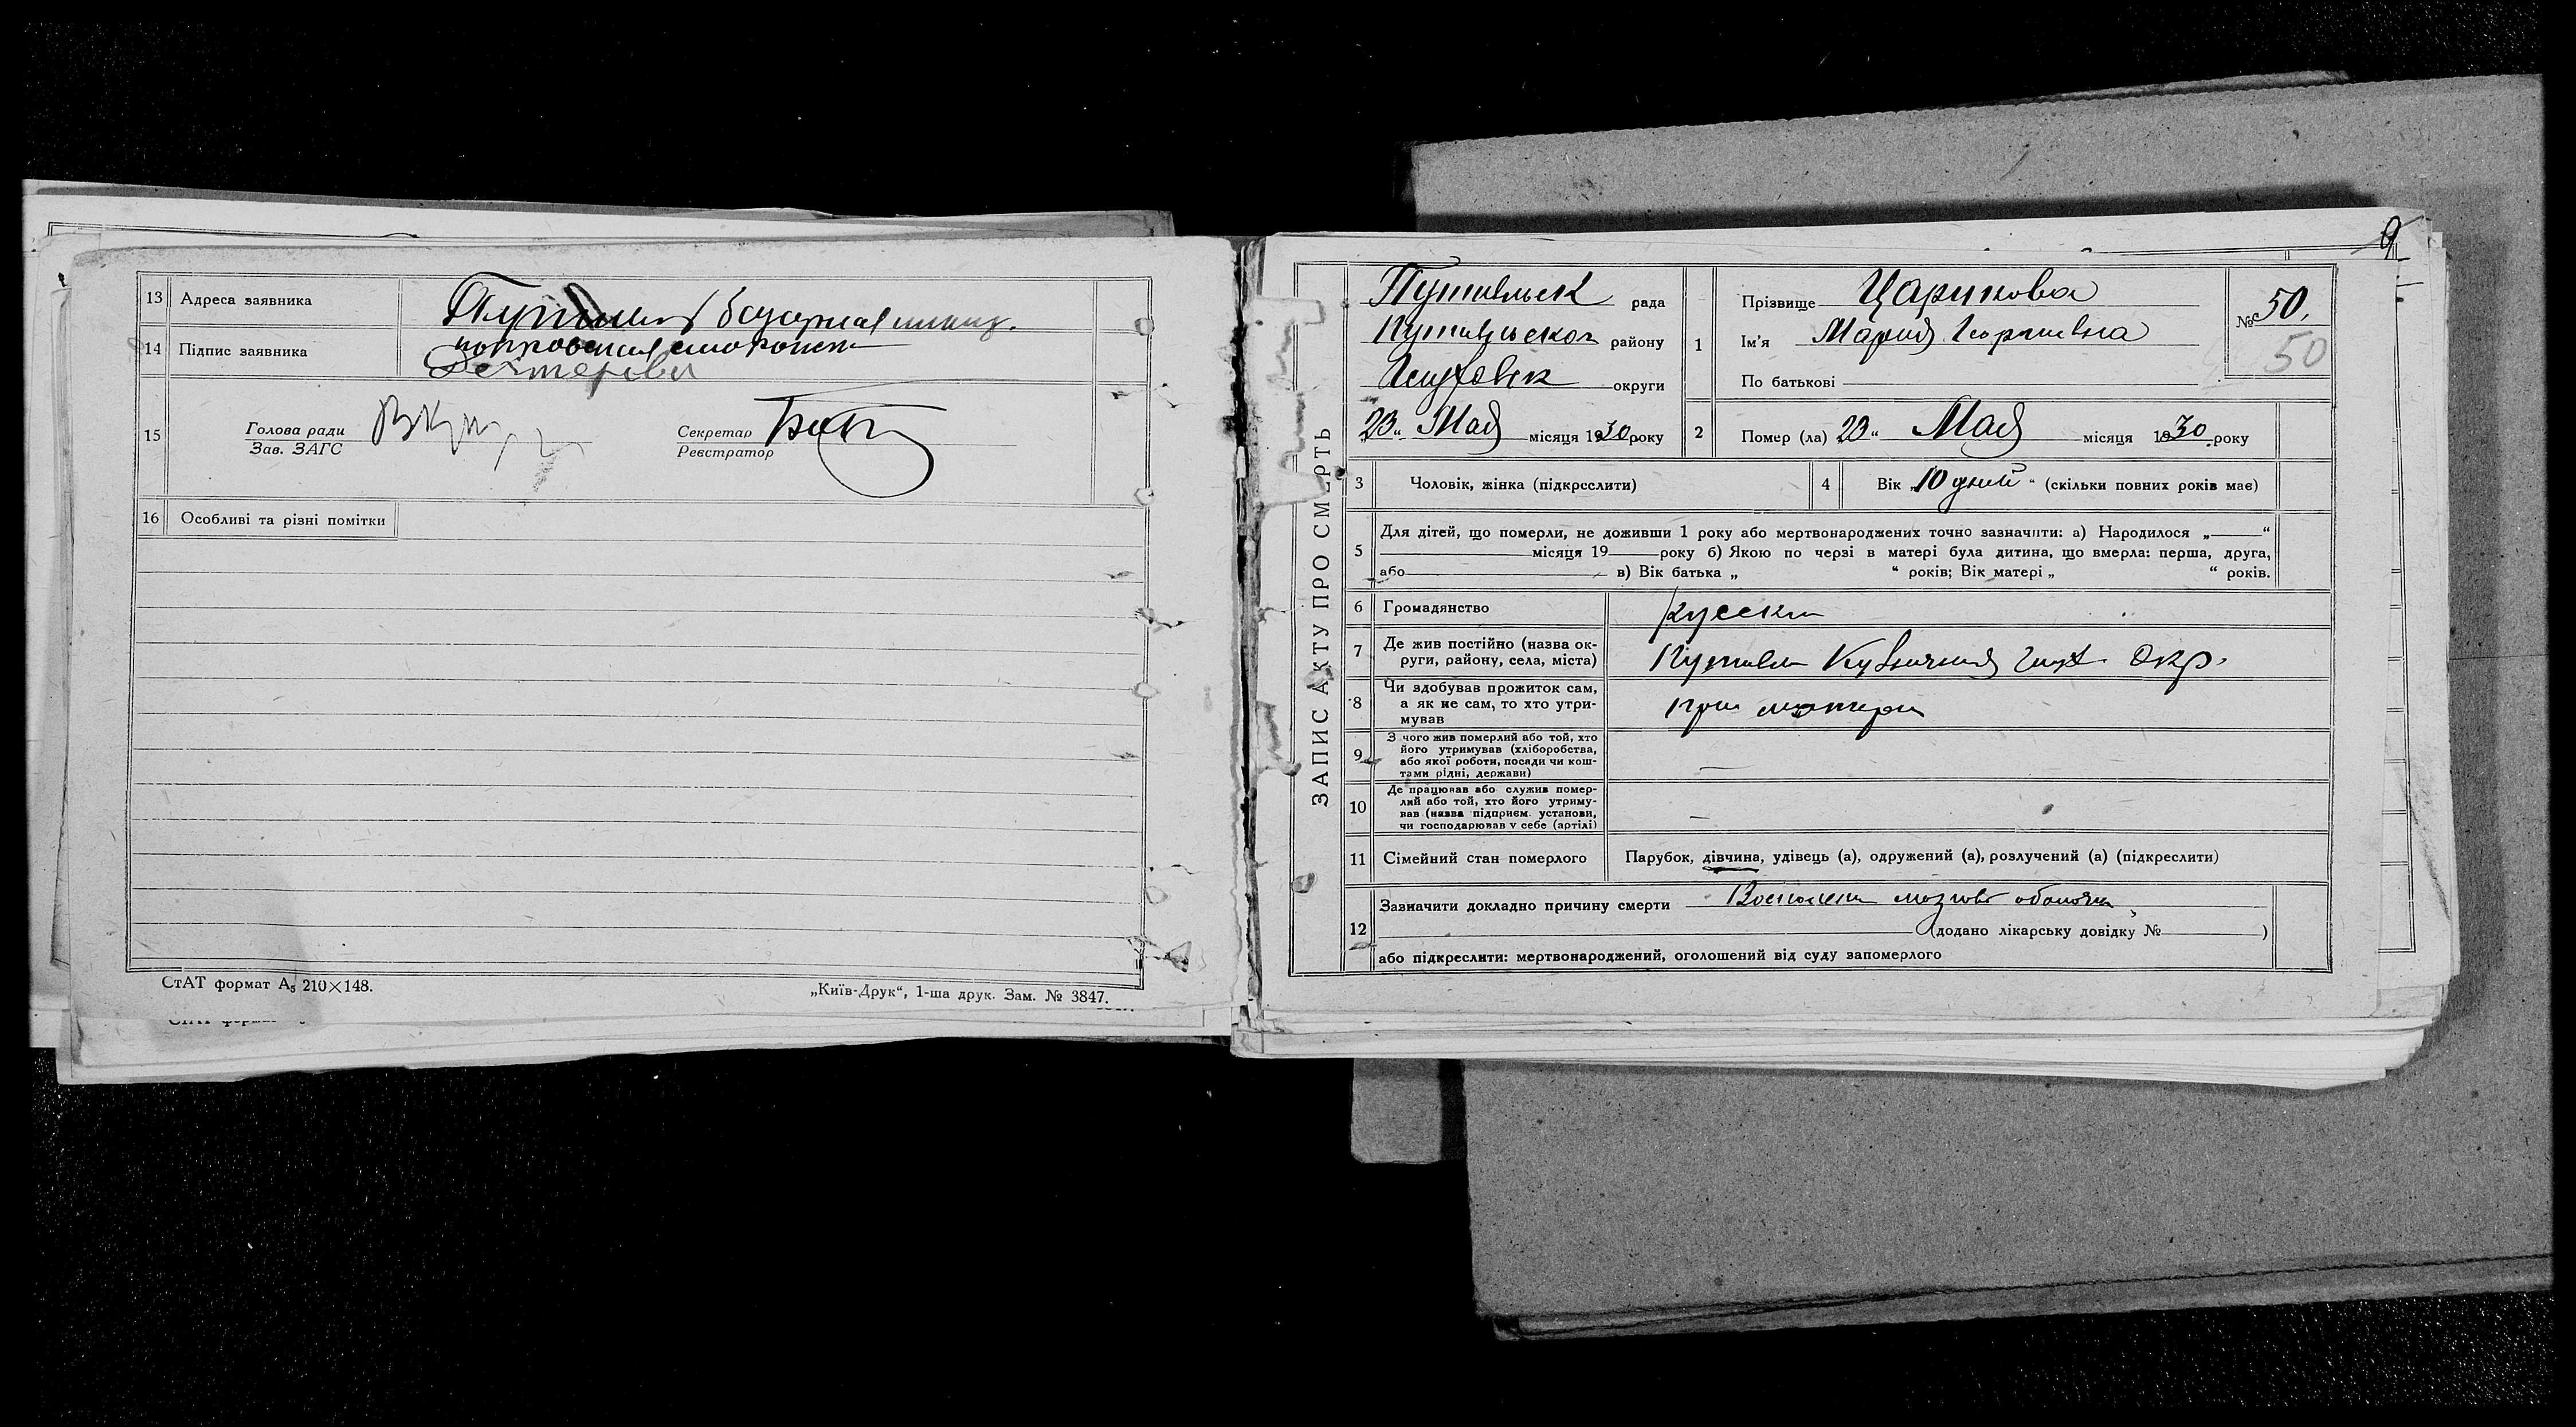 13 Адреса заявника
14 Підпис заявника
Дехтерева
15 Голова ради
Зав. ЗАГС
Секретар
Реєстратор
16 Особливі та різні помітки
СтАТ формат А5 210×148.
„Київ-Друк“, 1-ша друк. Зам. № 3847.
ЗАПИС АКТУ ПРО СМЕРТЬ
Путивльск рада
Путивльском району
округи
23 „ Мая місяця 1930 року
1 Прізвище Царикова
Ім’я Мария Георгиевна
По батькові
№ 50.
50
2 Помер (ла) 23 “ Мая місяця 1930 року
3 Чоловік, жінка (підкреслити)
4 Вік „ 10 дней “ (скільки повних років має)
5 Для дітей, що померли, не доживши 1 року або мертвонароджених точно зазначити: а) Народилося „ “
місяця 19 року б) Якою по черзі в матері була дитина, що вмерла: перша, друга,
або в) Вік батька „ “ років; Вік матері „ “ років.
6 Громадянство русск
7 Де жив постійно (назва ок-
руги, району, села, міста)
Путивль Кузничная Глух. Окр.
8 Чи здобував прожиток сам,
а як не сам, то хто утри-
мував
при матери
9 З чого жив померлий або той, хто
його утримував (хліборобства,
або якої роботи, посади чи кош-
тами рідні, держави) —
10 Де працював або служив помер-
лий або той, хто його утриму-
вав (назва підприєм. установи,
чи господарював у себе (артілі) —
11 Сімейний стан померлого Парубок, дівчина, удівець (а), одружений (а), розлучений (а) (підкреслити)
12 Зазначити докладно причину смерти Воспален мозгов оболочк
(додано лікарську довідку № )
або підкреслити: мертвонароджений, оголошений від суду запомерлого